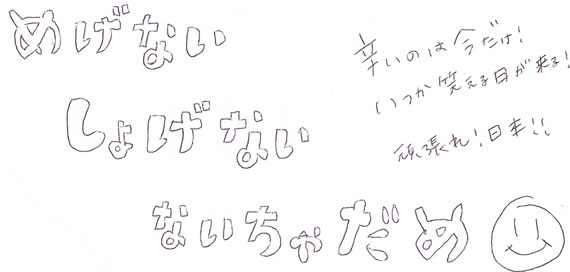 めげない
しょげない
ないちゃだめ
辛いのは今だけ!
いつか笑える日が来る!
頑張れ!日本!!